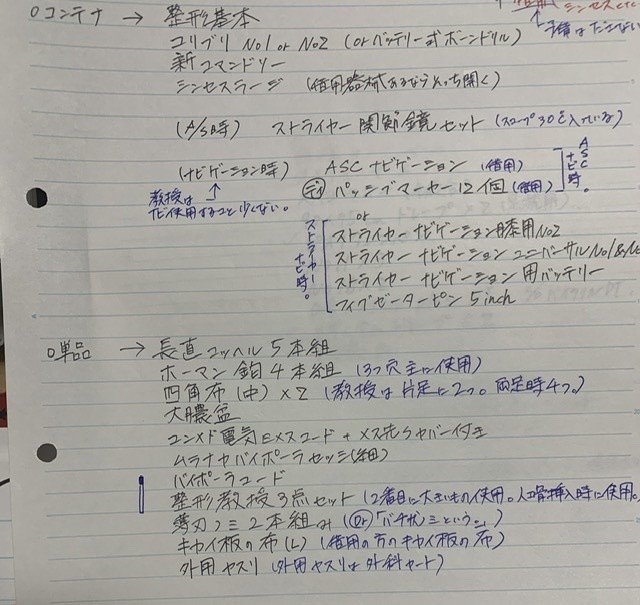 シンセスetc
↑予備はださない
○コンテナ → 整形基本
コリブリ No1 or No2 (orバッテリー式ボーンドリル)
新コマンドリー
シンセスラージ (借用器械あるならそっち開く)
(A/S時) ストライヤー関節鏡セット (スコープ30℃入っている)
(ナビゲーション時) ASCナビゲーション (借用)
ASCナビ時。
↑教授はナビ使用すること少ない。
パッシブマーカー12個 (借用)
or
ストライカーナビ時。
ストライヤー ナビゲーション膝用No2
ストライヤー ナビゲーション ユニバーサルNo1&No
ストライヤー ナビゲーション用バッテリー
フィグゼーターピン 5inch
○単品 → 長直コッヘル5本組
ホーマン鉤4本組 (3つ穴主に使用)
四角布(中)×2 (教授は片足に2つ。両足時4つ。)
大膿盆
コンメド電気EXスコード+メス先シャバー付き
ムラナカバイポーラセッシ(細)
バイポーラコード
整形教授3点セット (2番目に大きいもの使用。人工骨挿入時に使用。
薄刃ノミ2本組み (Dr「バチ状ノミという。」)
キカイ板の布(L) (借用の方のキカイ板の布)
外用ヤスリ (外用ヤスリは外科カート)